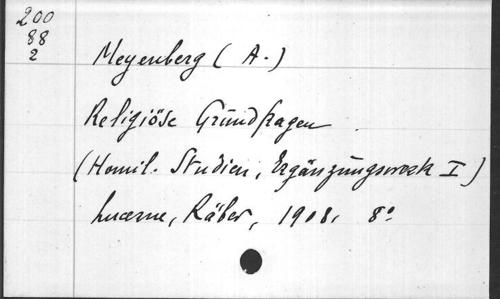 200
88
2
Meyenberg (A.)
Religiöse Grundfragen
(Homil. Studien, Ergänzungswerk I)
Lucerne, Räber, 1908, 8º